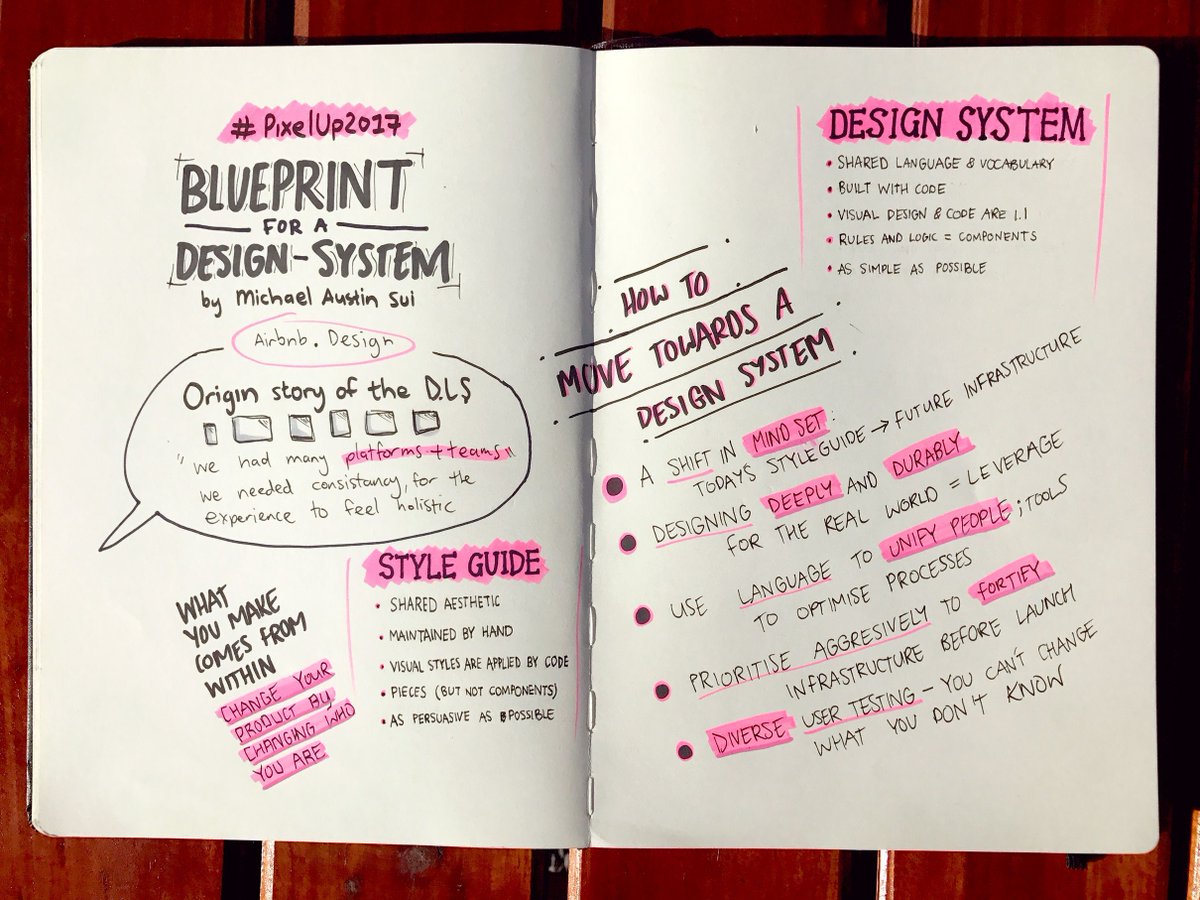 # PixelUp2017
BLUEPRINT
FOR A
DESIGN-SYSTEM
by Michael Austin Sui
Airbnb. Design
Origin story of the D.L.S
"we had many platforms + teams"
we needed consistancy, for the
experience to feel holistic
WHAT
YOU MAKE
COMES FROM
WITHIN
CHANGE YOUR
PRODUCT BY
CHANGING WHO
YOU ARE
STYLE GUIDE
• SHARED AESTHETIC
• MAINTAINED BY HAND
• VISUAL STYLES ARE APPLIED BY CODE
• PIECES (BUT NOT COMPONENTS)
• AS PERSUASIVE AS POSSIBLE
DESIGN SYSTEM
• SHARED LANGUAGE & VOCABULARY
• BUILT WITH CODE
• VISUAL DESIGN & CODE ARE 1.1
• RULES AND LOGIC = COMPONENTS
• AS SIMPLE AS POSSIBLE
HOW TO
MOVE TOWARDS A
DESIGN SYSTEM
• A SHIFT IN MIND SET:
TODAYS STYLEGUIDE → FUTURE INFRASTRUCTURE
• DESIGNING DEEPLY AND DURABLY
FOR THE REAL WORLD = LEVERAGE
• USE LANGUAGE TO UNIFY PEOPLE; TOOLS
TO OPTIMISE PROCESSES
• PRIORITISE AGGRESIVELY TO FORTIFY
INFRASTRUCTURE BEFORE LAUNCH
• DIVERSE USER TESTING – YOU CAN'T CHANGE
WHAT YOU DON'T KNOW